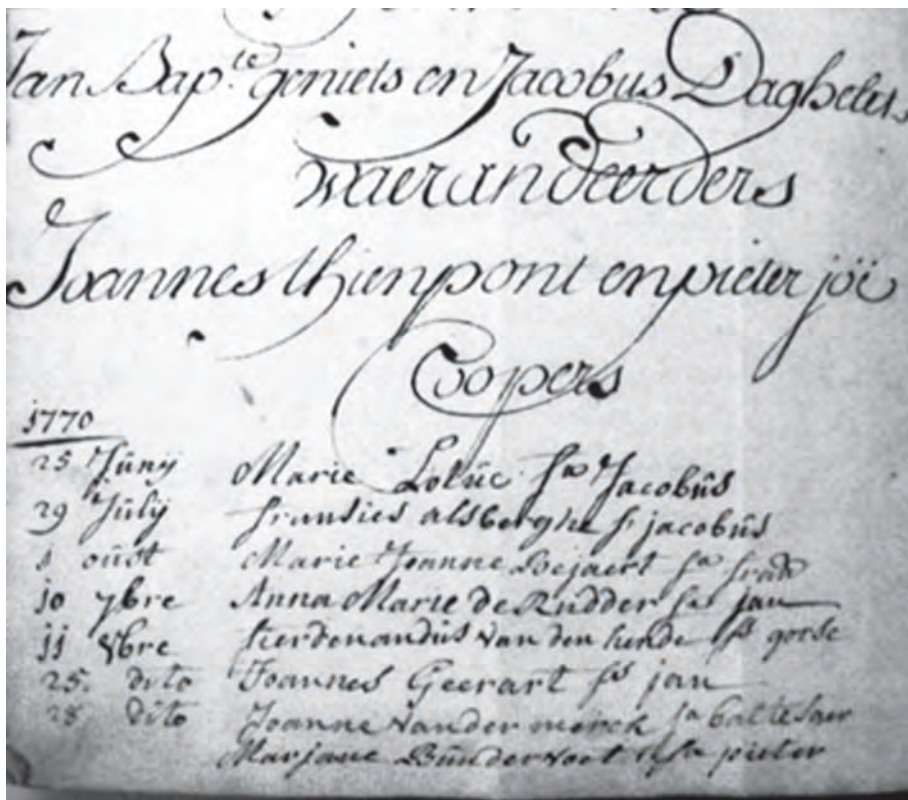 Jan Bap.te geniets en Jacobus Daghelers
waerandeerders
Joannes thienpont en pieter joë
Coopers
1770
25 Junij Marie Loluc fa Jacobus
29 Julij fransies alsberghe fs jacobus
oust Marie Joanne Bejaert fa fran
10 7bre Anna Marie de Rudder fa jan
11 8bre ferdenandus van den hende fs
25. dito Joannes Geerart fs jan
28 dito Joanne vander merck fa baltesaer
Marjane fa pieter